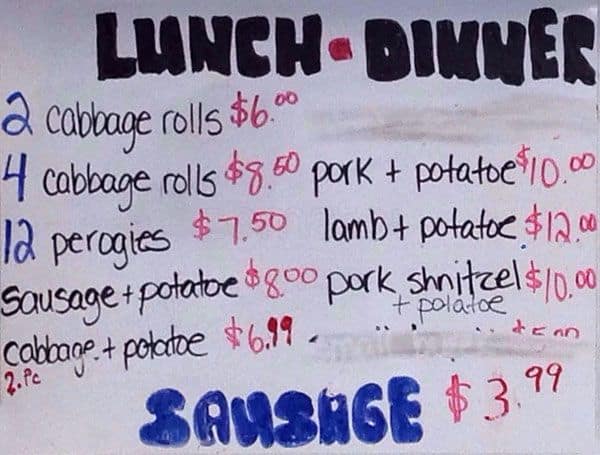 LUNCH - DINNER
2 cabbage rolls $6.00
4 cabbage rolls $8.50
pork + potatoe $10.00
12 perogies $7.50
lamb + potatoe $12.00
Sausage + potatoe $8.00
pork shnitzel $10.00
+ potatoe
cabbage. + potatoe $6.99
2.Pc
SAUSAGE $3.99